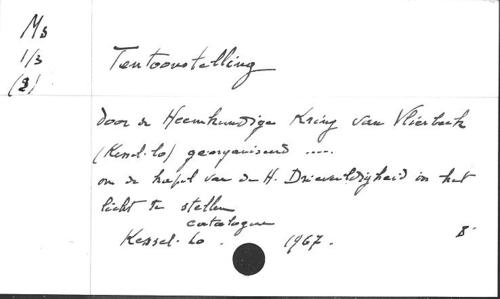 Ms
1/3
(2)
Tentoonstelling
door de Heemkundige Kring van Vlierbeek
(Kessel-Lo) georganiseerd .....
om de kapel van de H. Drievuldigheid in het
licht te stellen
catalogue
Kessel-Lo . 1967. 8°